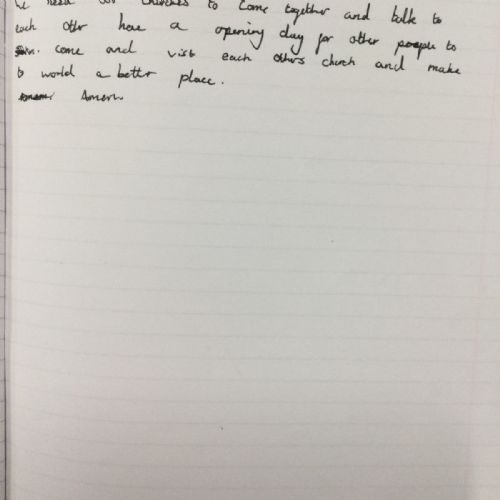 We need our churches to come together and talk to
each other have a opening day for other people to
come and visit each others church and make
world a better place.
Amen.